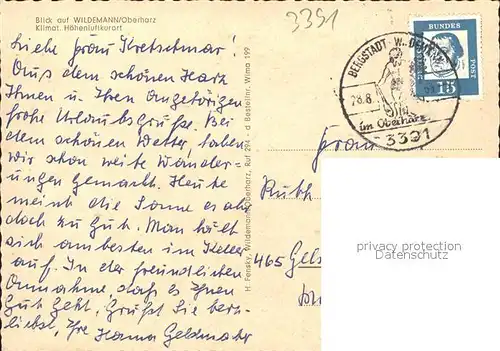 Blick auf WILDEMANN/Oberharz
Klimat. Höhenluftkurort
3391
Liebe Frau Kretschmar!
Aus dem schönen Harz
Ihnen u. Ihren Angehörigen
frohe Urlaubsgrüße. Bei
dem schönen Wetter, haben
wir schon weite Wander-
ungen gemacht. Heute
meint die Sonne es aber
doch zu gut. Man hält
sich am besten im Keller
auf. In der freundlichen
Annahme daß es Ihnen
gut geht, Grüßt Sie herz-
liebst, Ihre Hanna Geldmahr
H. Fensky, Wildemann/Oberharz, Ruf 294 - d Bestellnr. Wima 199
BERGSTADT WILDEMANN
28.8.
im Oberharz
3391
DEUTSCHE
BUNDES
POST
15
Frau
Ruth
465 Gels
privacy protection
Datenschutz